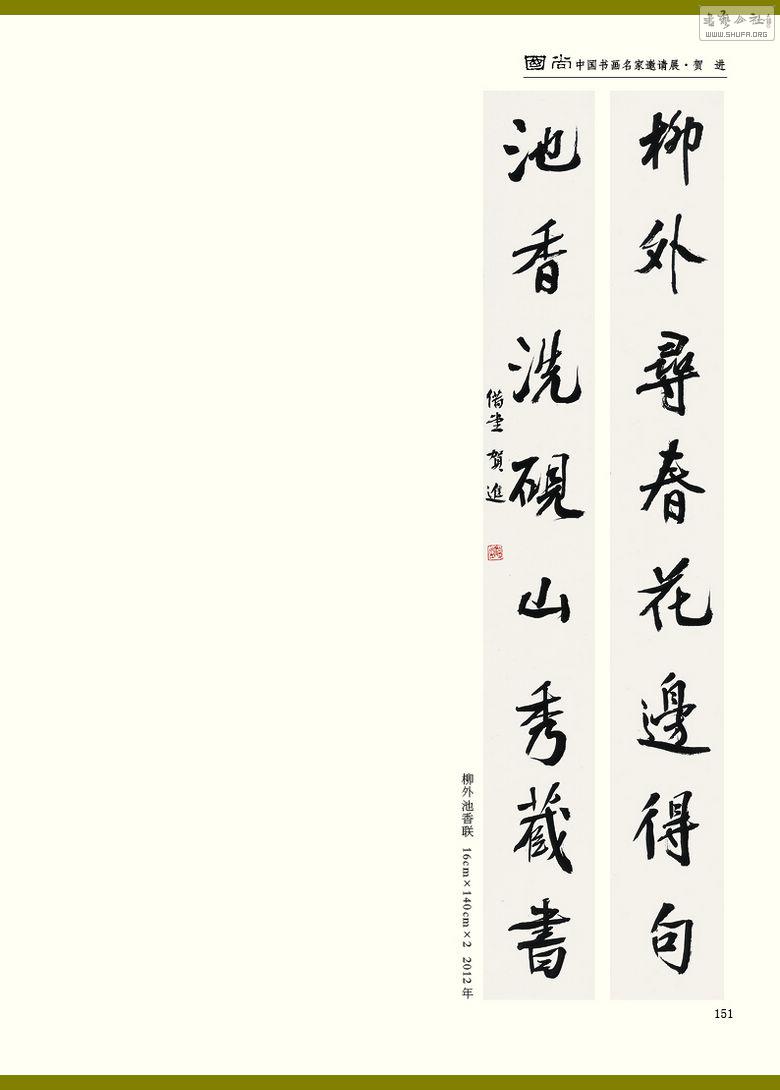 書藝公社
WWW.SHUFA.ORG
國尚 中国书画名家邀请展·贺 进
柳外尋春花邊得句
池香洗硯山秀蔵書
借堂 賀進
柳外池香联 16cm×140cm×2 2012年
151